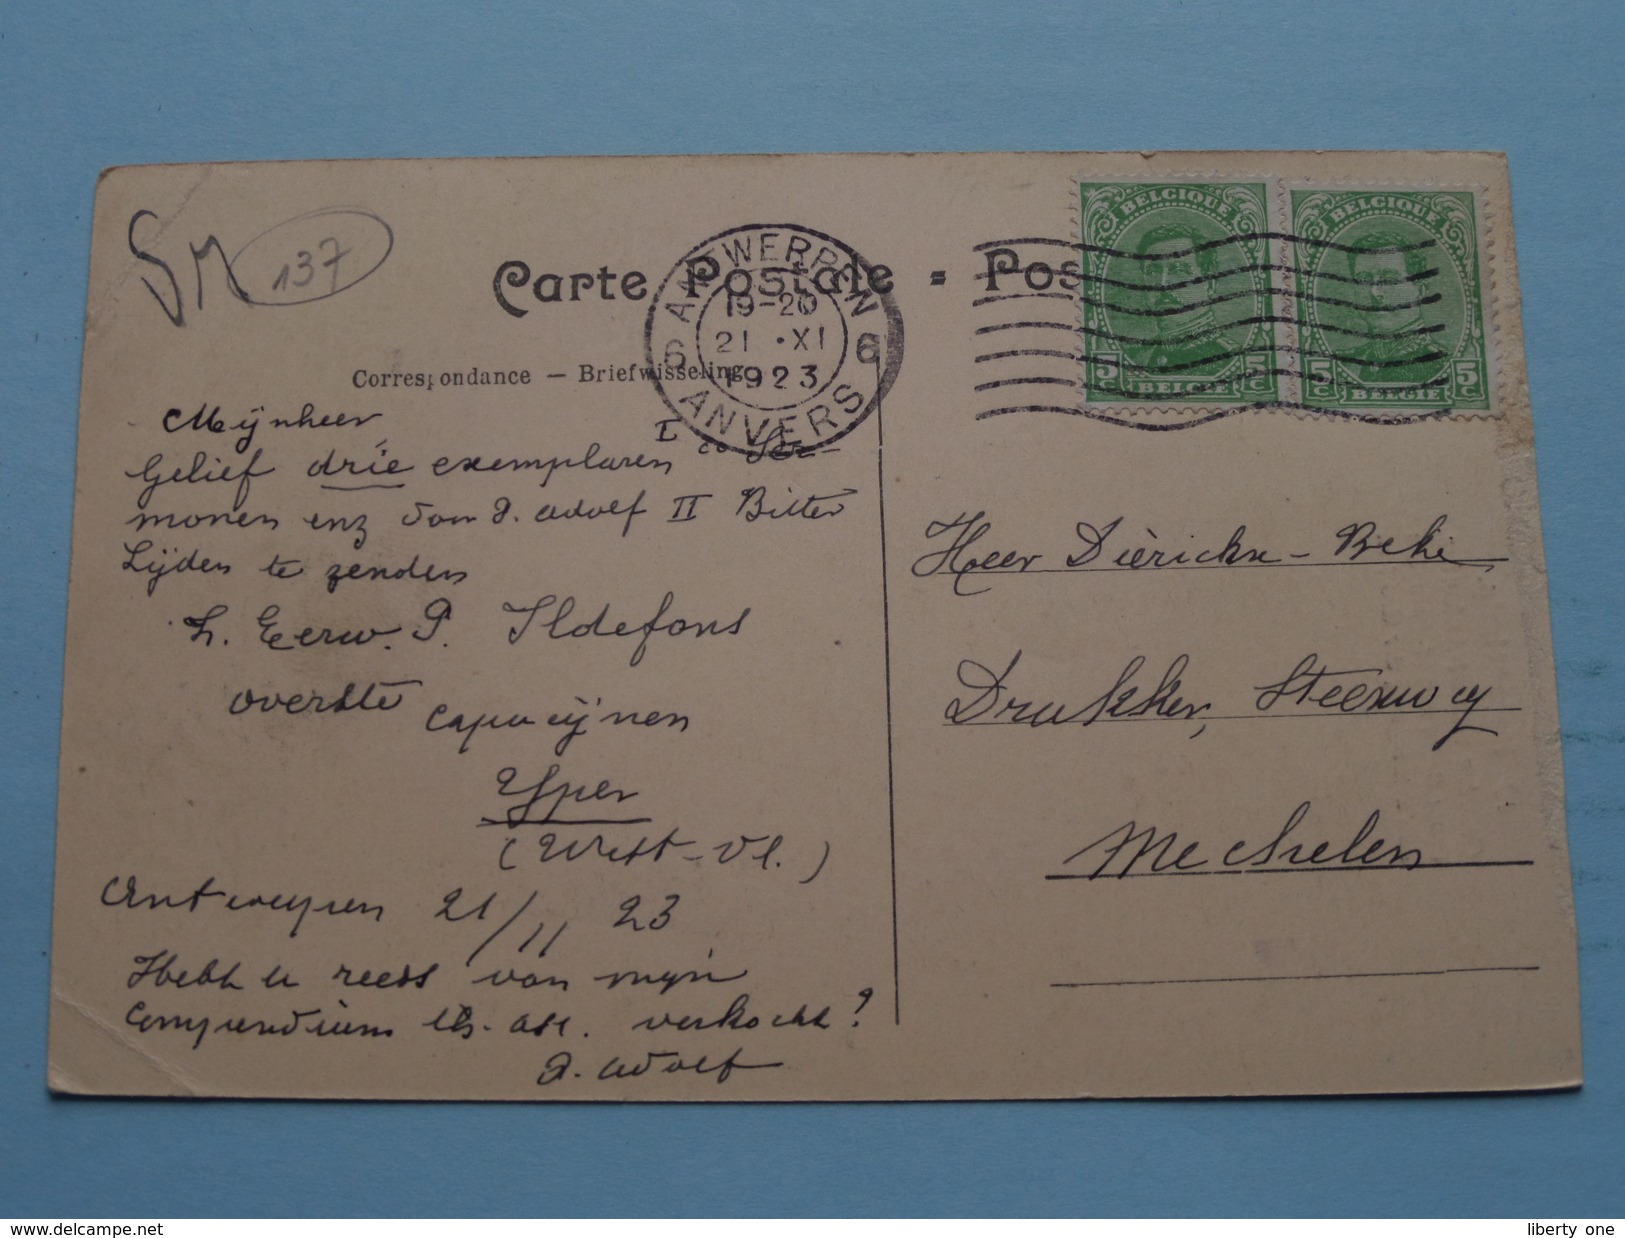 SM 137
Carte Postale = Pos
ANTWERPEN
6 6
19-20
21 · XI
1923
ANVERS
BELGIQUE
5c 5c
BELGIË
BELGIQUE
5c 5c
BELGIË
Correspondance — Briefwisseling
Mijnheer
Gelief drie exemplaren I en Ser-
monen enz van P. Adolf II Bitter
Lijden te zenden
Z. Eerw. P. Ildefons
overste
Capucijnen
Yper
(West-Vl.)
Antwerpen 21/11 23
Hebt u reeds van mijn
Compendium verkocht?
P. Adolf
Heer Dièrickx-Beke
Drukker, Steenweg
Mechelen
www.delcampe.net
liberty one